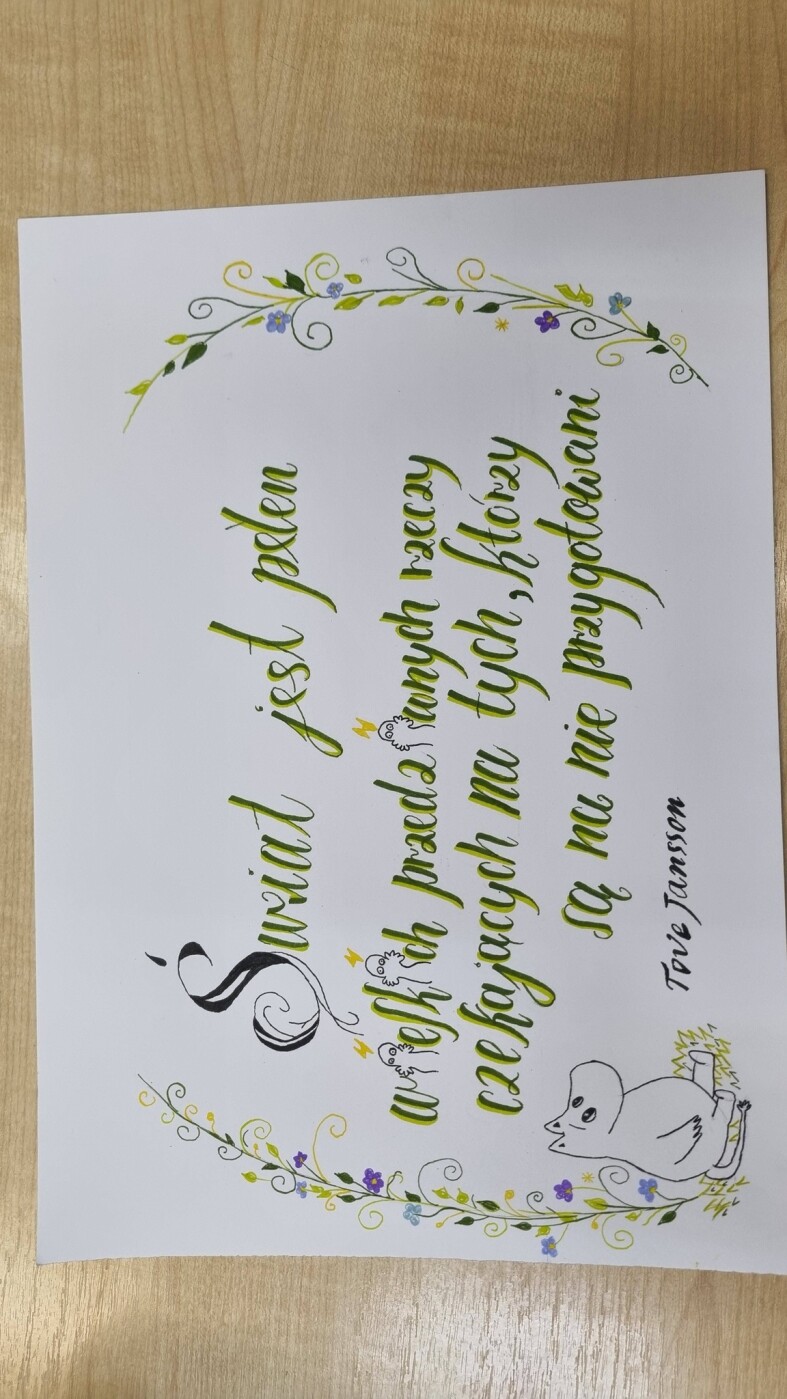 Świat jest pełen
wielkich przedziwnych rzeczy
czekających na tych, którzy
są na nie przygotowani
Tove Jansson